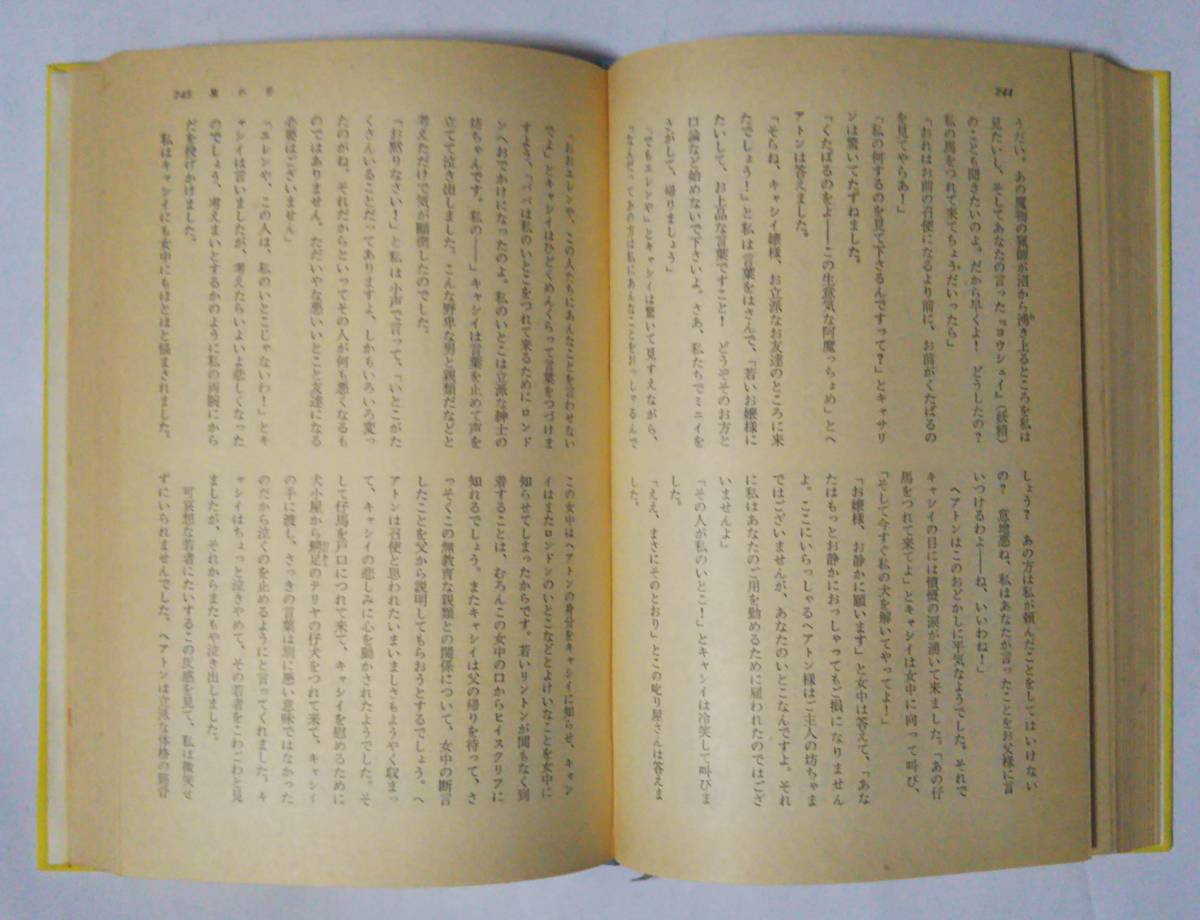 244
うだい。あの魔物の猟師が沼から湧き上るところを私は
見たいし、そしてあなたの言った『ヨウシェイ』(妖精)
のことも聞きたいのよ。だから早くよ! どうしたの?
私の馬をつれて来てちょうだいったら」
「おれはお前の召使になるより前に、お前がくたばるの
を見てやらあ!」
「私の何するのを見て下さるんですって?」とキャサリ
ンは驚いてたずねました。
「くたばるのをよ——この生意気な阿魔っちょめ」とヘ
アトンは答えました。
「そらね、キャシイ嬢様、お立派なお友達のところに来
たでしょう!」と私は言葉をはさんで、「若いお嬢様に
たいして、お上品な言葉ですこと! どうぞそのお方と
口論など始めないで下さいよ。さあ、私たちでミニイを
さがして、帰りましょう」
「でもエレンや」とキャシイは驚いて見すえながら、
「なんだってあの方は私にあんなことをおっしゃるんで
しょう? あの方は私が頼んだことをしてはいけない
の? 意地悪ね、私はあなたが言ったことをお父様に言
いつけるわよ——ね、いいわね!」
ヘアトンはこのおどかしに平気なようでした。それで
キャシイの目には憤慨の涙が湧いて来ました。「あの仔
馬をつれて来てよ」とキャシイは女中に向って叫び、
「そして今すぐ私の犬を解いてやってよ!」
「お嬢様、お静かに願います」と女中は答えて、「あな
たはもっとお静かにおっしゃってもご損になりません
よ。ここにいらっしゃるヘアトン様はご主人の坊ちゃま
ではございませんが、あなたのいとこなんですよ。それ
に私はあなたのご用を勤めるために雇われたのではござ
いませんよ」
「その人が私のいとこ!」とキャシイは冷笑して叫びま
した。
「ええ、まさにそのとおり」とこの叱り屋さんは答えま
した。
245
嵐が丘
「おおエレンや、この人たちにあんなことを言わせない
でよ」とキャシイはひどくめんくらって言葉をつづけま
すよう、「パパは私のいとこをつれて来るためにロンド
ンへおでかけになったのよ。私のいとこは立派な紳士の
坊ちゃんです。私の——」キャシイは言葉を止めて声を
立てて泣き出しました。こんな野卑な男と親類だなどと
考えただけで気が顛倒したのでした。
「お黙りなさい!」と私は小声で言って、「いとこがた
くさんいることだってありますよ、しかもいろいろ変っ
たのがね。それだからといってその人が何も悪くなるも
のではありません。ただいやな悪いいとこと友達になる
必要はございません」
「エレンや、この人は、私のいとこじゃないわ!」とキ
ャシイは言いましたが、考えたらいよいよ悲しくなった
のでしょう、考えまいとするかのように私の両腕にから
だを投げかけました。
私はキャシイにも女中にもほとほと悩まされました。
この女中はヘアトンの身分をキャシイに知らせ、キャシ
イはまたロンドンのいとこなどとよけいなことを女中に
知らせてしまったからです。若いリントンが間もなく到
着することは、むろんこの女中の口からヒイスクリフに
知れるでしょう。またキャシイは父の帰りを待って、さ
っそくこの無教育な親類との関係について、女中の断言
したことを父から説明してもらおうとするでしょう。ヘ
アトンは召使と思われたいまいましさもようやく収まっ
て、キャシイの悲しみに心を動かされたようでした。そ
して仔馬を戸口につれて来て、キャシイを慰めるために
犬小屋から足のテリヤの仔犬をつれて来て、キャシイ
の手に渡し、さっきの言葉は別に悪い意味ではなかった
のだから泣くのを止めるようにと言ってくれました。キ
ャシイはちょっと泣きやめて、その若者をこわごわと見
ましたが、それからまたもや泣き出しました。
可哀想な若者にたいするこの反感を見て、私は微笑せ
ずにいられませんでした。ヘアトンは立派な体格の